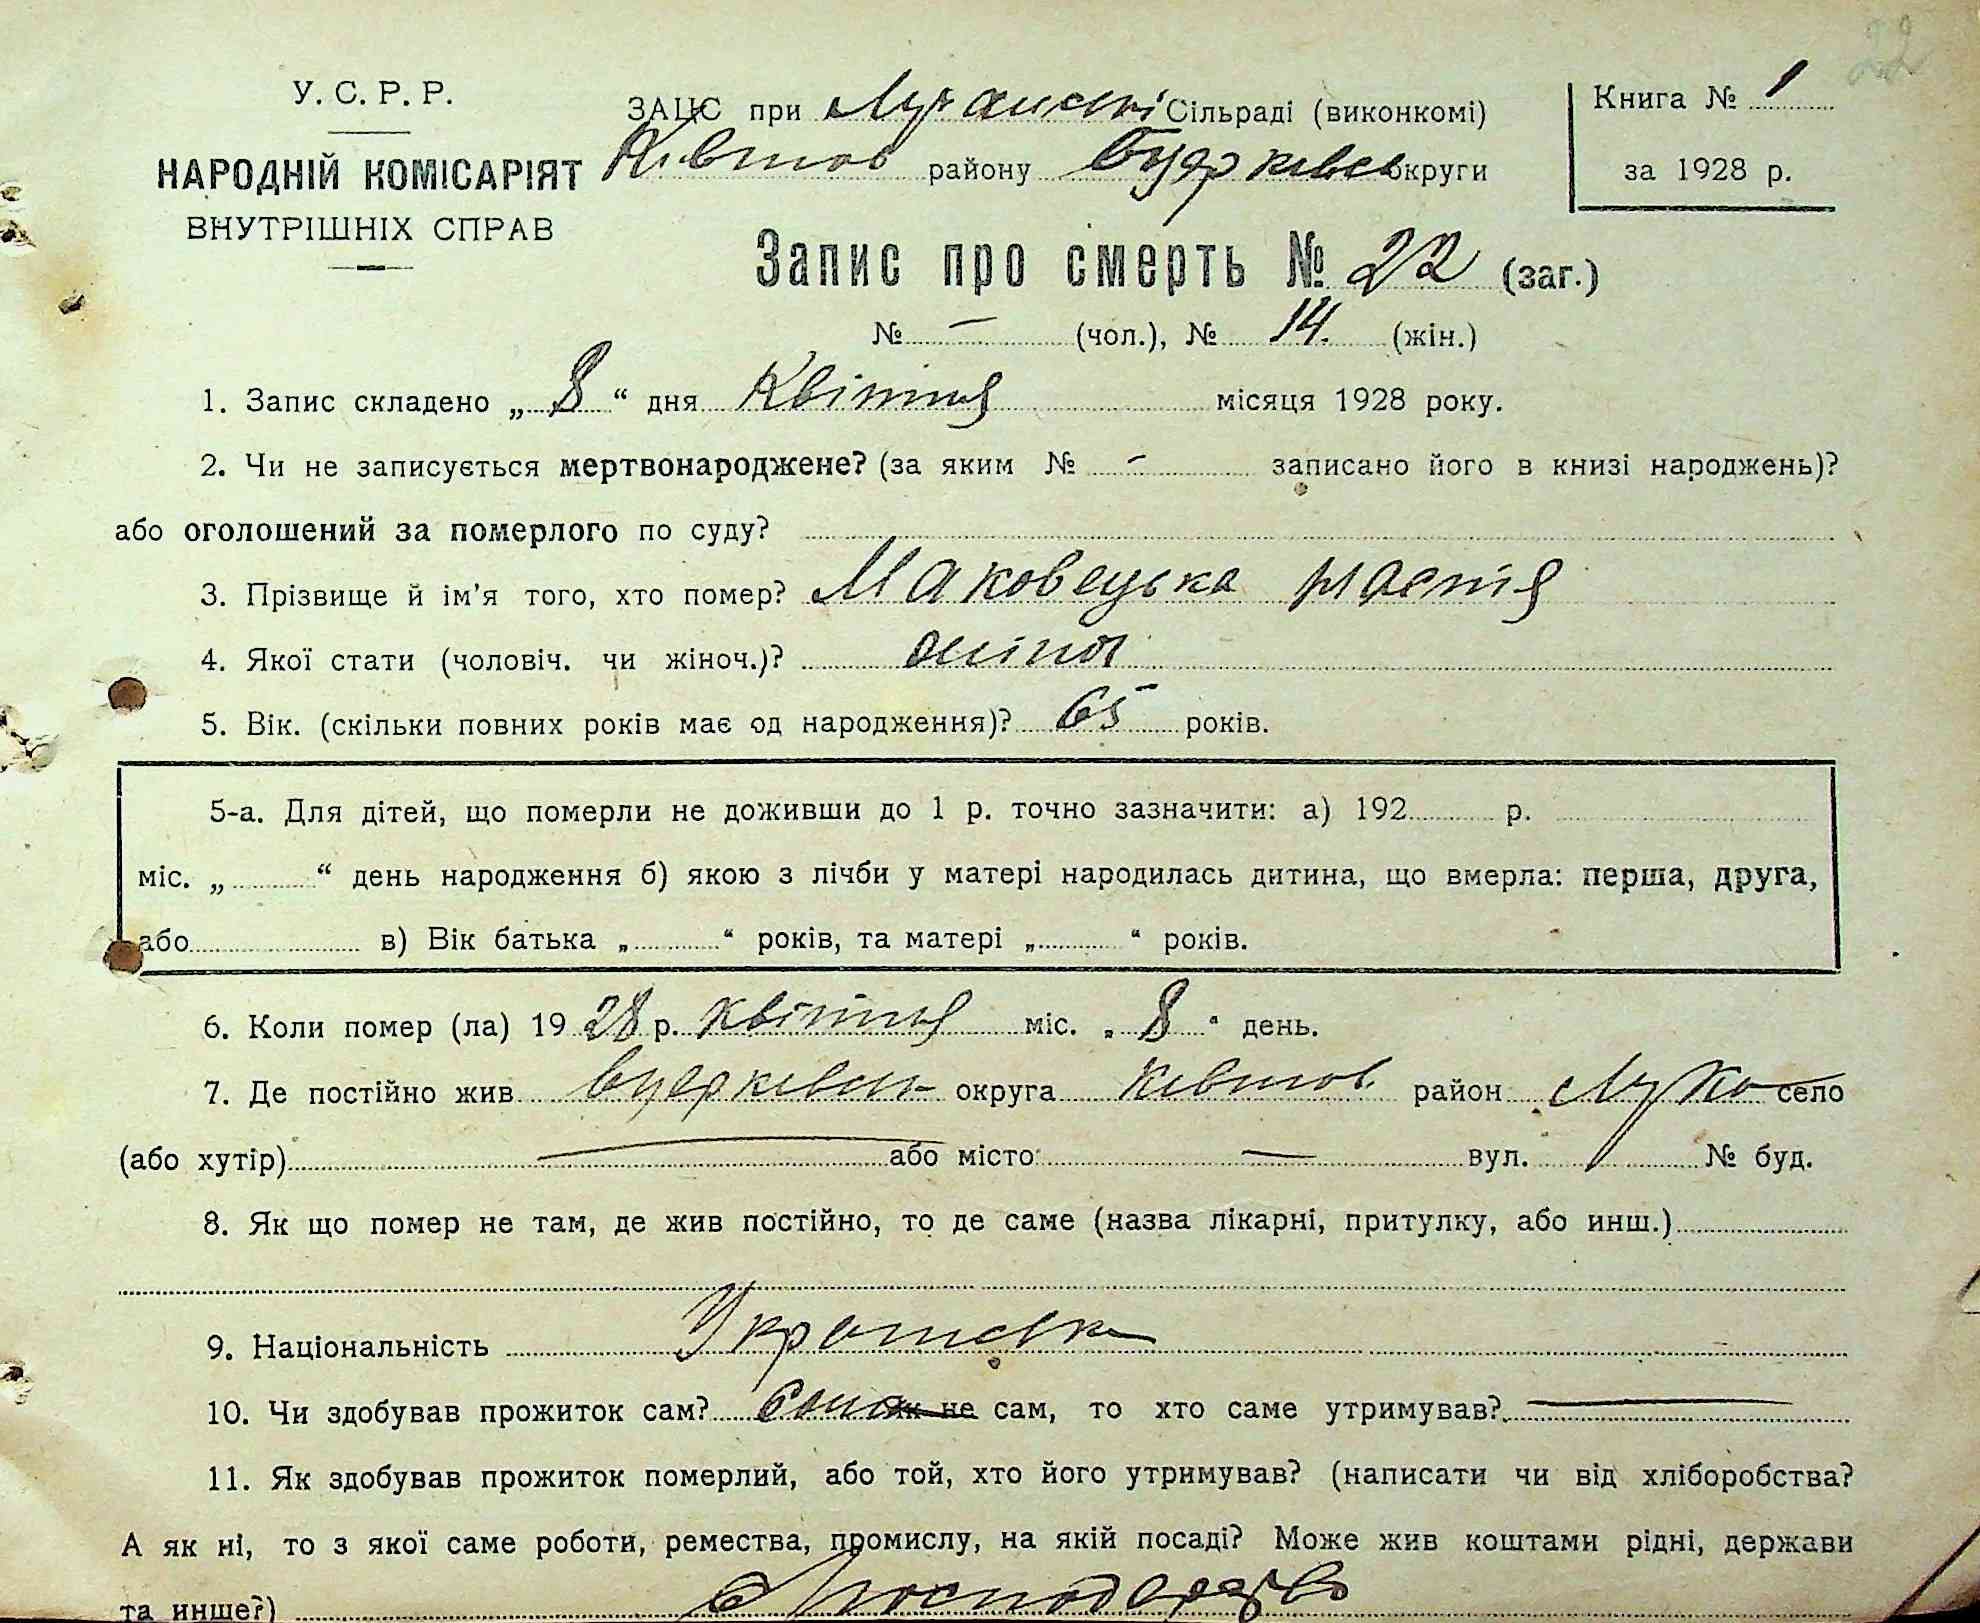 22
У. С. Р. Р.
НАРОДНІЙ КОМІСАРІЯТ
ВНУТРІШНІХ СПРАВ
ЗАЦС при Сільраді (виконкомі)
району округи
Книга № 1
за 1928 р.
Запис про смерть № 22 (заг.)
№ — (чол.), № 14. (жін.)
1. Запис складено „ 8 “ дня Квітня місяця 1928 року.
2. Чи не записується мертвонароджене? (за яким № - записано його в книзі народжень)?
або оголошений за померлого по суду?
3. Прізвище й ім'я того, хто помер? Маковецька
4. Якої стати (чоловіч. чи жіноч.)?
5. Вік. (скільки повних років має од народження)? 65 років.
5-а. Для дітей, що померли не доживши до 1 р. точно зазначити: а) 192 р.
міс. „ “ день народження б) якою з лічби у матері народилась дитина, що вмерла: перша, друга,
або в) Вік батька „ “ років, та матері „ “ років.
6. Коли помер (ла) 19 28 р. квітня міс. „ 8 “ день.
7. Де постійно жив округа район село
(або хутір) — або місто — вул. № буд.
8. Як що помер не там, де жив постійно, то де саме (назва лікарні, притулку, або инш.)
9. Національність
10. Чи здобував прожиток сам? як не сам, то хто саме утримував? —
11. Як здобував прожиток померлий, або той, хто його утримував? (написати чи від хліборобства?
А як ні, то з якої саме роботи, ремества, промислу, на якій посаді? Може жив коштами рідні, держави
та инше?)